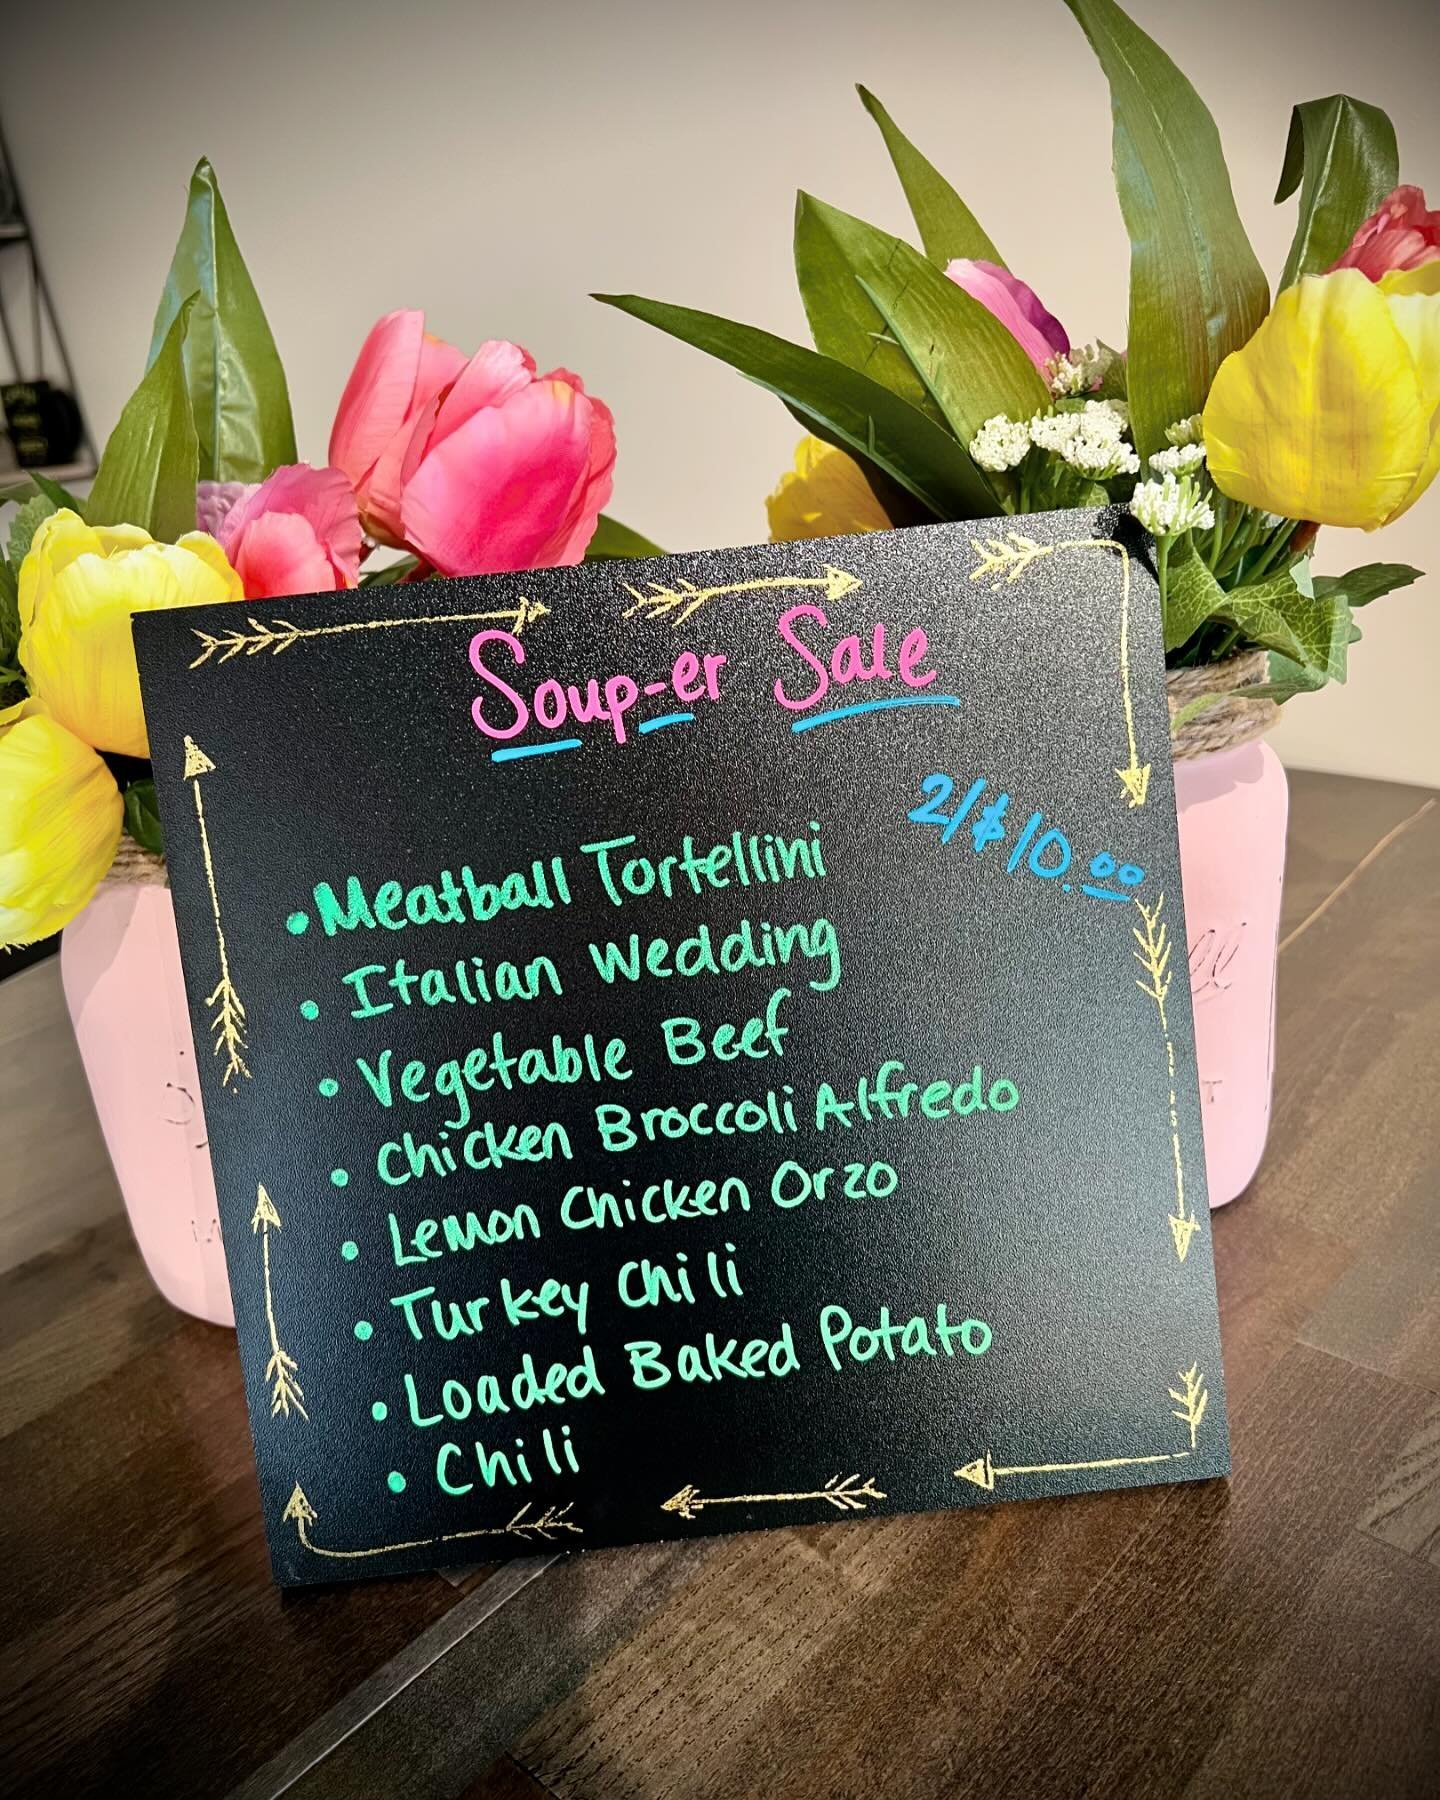 Soup-er Sale
2/$10.00
• Meatball Tortellini
• Italian Wedding
• Vegetable Beef
• Chicken Broccoli Alfredo
• Lemon Chicken Orzo
• Turkey Chili
• Loaded Baked Potato
• Chili